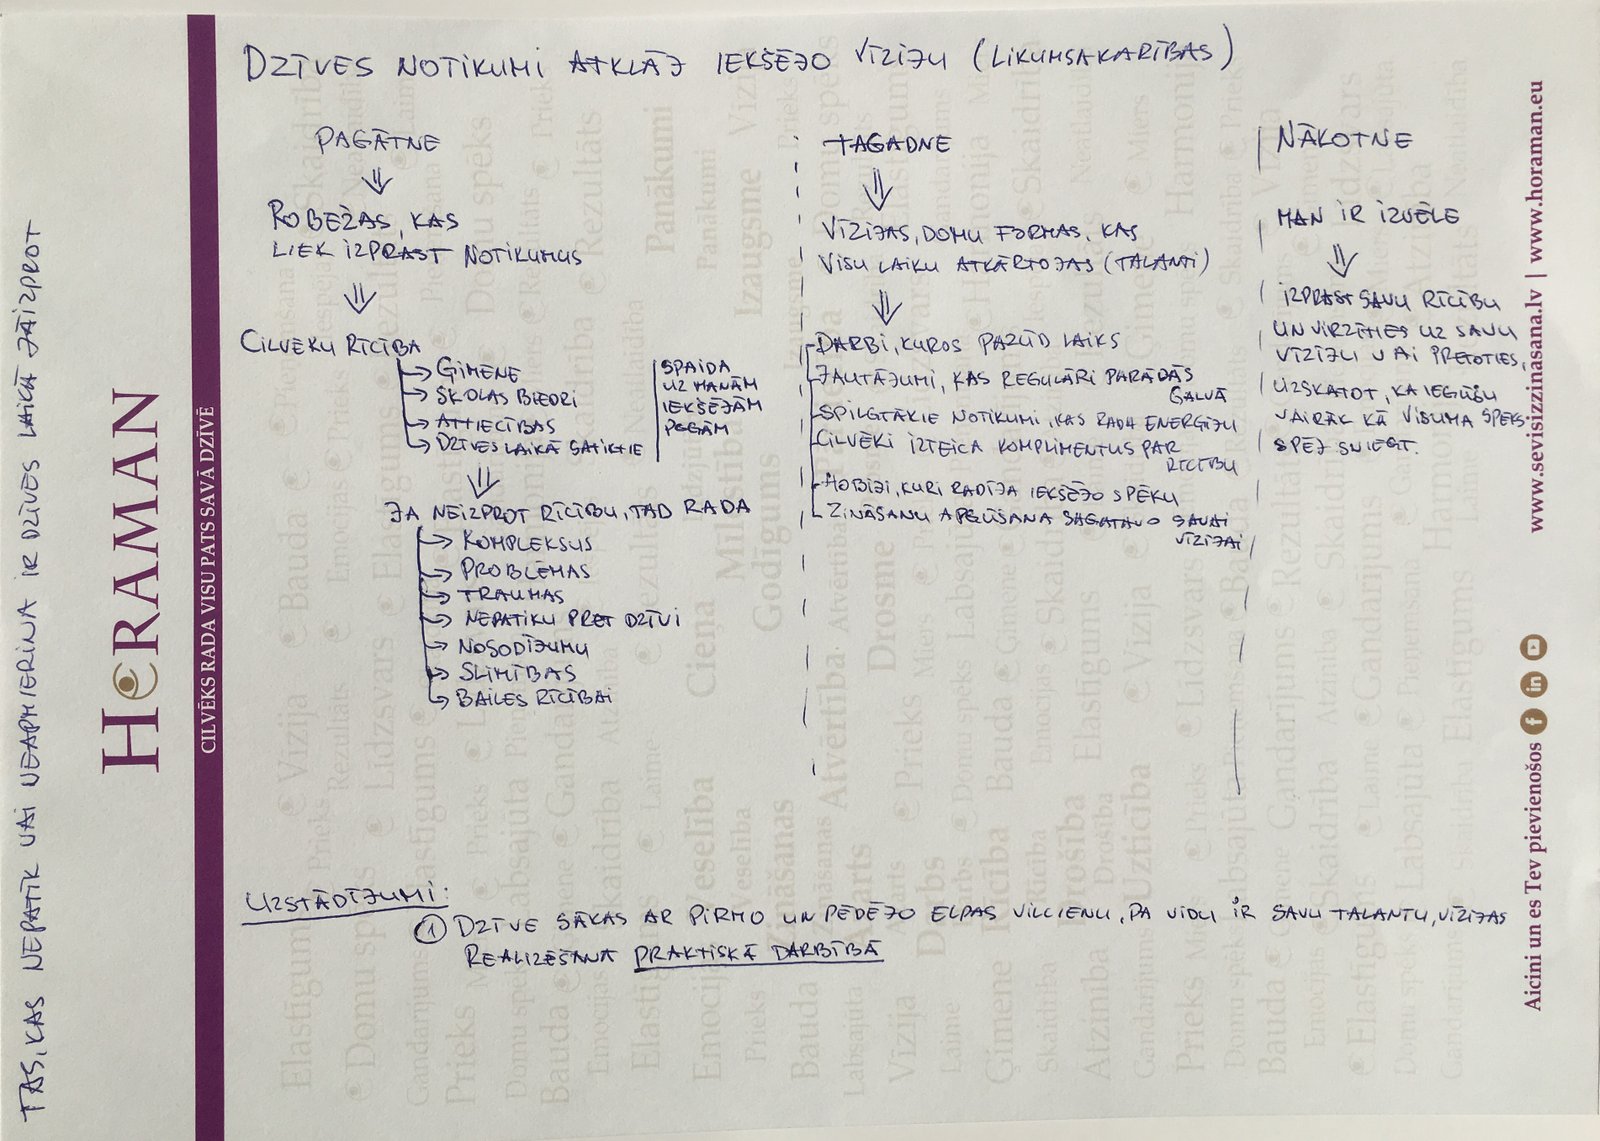 DZĪVES NOTIKUMI ATKLĀJ IEKŠĒJO VĪZIJU (LIKUMSAKARĪBAS)
PAGĀTNE
ROBEŽAS, KAS
LIEK IZPRAST NOTIKUMUS
CILVĒKU RĪCĪBA
ĢIMENE
SKOLAS BIEDRI
ATTIECĪBAS
DZĪVES LAIKĀ SATIKTIE
SPAIDA
UZ MANĀM
IEKŠĒJĀM
POGĀM
JA NEIZPROT RĪCĪBU, TAD RADA
KOMPLEKSUS
PROBLĒMAS
TRAUMAS
NEPATIKU PRET DZĪVI
NOSODĪJUMU
SLIMĪBAS
BAILES RĪCĪBAI
TAGADNE
VĪZIJAS, DOMU FORMAS, KAS
VISU LAIKU ATKĀRTOJAS (TALANTI)
DARBI, KUROS PAZŪD LAIKS
JAUTĀJUMI, KAS REGULĀRI PARĀDĀS
GALVĀ
SPILGTĀKIE NOTIKUMI, KAS RADA ENERĢIJU
CILVĒKI IZTEICA KOMPLIMENTUS PAR
RĪCĪBU
HOBIJI, KURI RADĪJA IEKŠĒJO SPĒKU
ZINĀŠANU APGŪŠANA SAGATAVO SAVAI
VĪZIJAI
NĀKOTNE
MAN IR IZVĒLE
IZPRAST SAVU RĪCĪBU
UN VIRZĪTIES UZ SAVU
VĪZIJU VAI PRETOTIES,
UZSKATOT, KA IEGŪŠU
VAIRĀK KĀ VISUMA SPĒKS
SPĒJ SNIEGT.
UZSTĀDĪJUMI:
① DZĪVE SĀKAS AR PIRMO UN PĒDĒJO ELPAS VILCIENU, PA VIDU IR SAVU TALANTU, VĪZIJAS
REALIZĒŠANA PRAKTISKĀ DARBĪBĀ
TAS, KAS NEPATĪK VAI NEAPMIERINA IR DZĪVES LAIKĀ JĀIZPROT
HORAMAN
CILVĒKS RADA VISU PATS SAVĀ DZĪVĒ
Aicini un es Tev pievienošos
www.sevisizzinasana.lv | www.horaman.eu